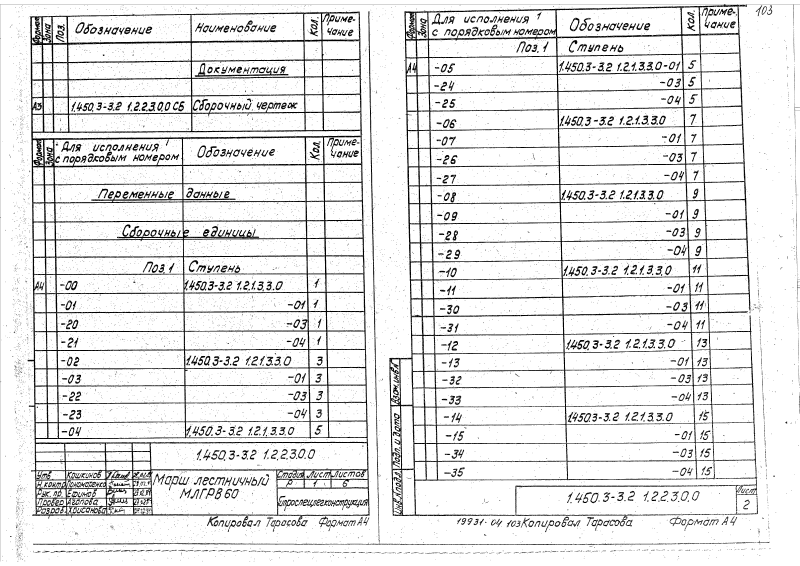 Формат Зона Поз. Обозначение Наименование Кол. Приме-
чание
Документация
А3 1.450.3-3.2 1.2.2.3.0.0 СБ Сборочный чертеж
Формат Зона Для исполнения Обозначение Кол. Приме-
с порядковым номером чание
Переменные данные
Сборочные единицы
Поз.1 Ступень
А4 -00 1.450.3-3.2 1.2.1.3.3.0 1
-01 -01 1
-20 -03 1
-21 -04 1
-02 1.450.3-3.2 1.2.1.3.3.0 3
-03 -01 3
-22 -03 3
-23 -04 3
-04 1.450.3-3.2 1.2.1.3.3.0 5
1.450.3-3.2 1.2.2.3.0.0
Утв. Кашкинов
Н.контр Пономаренко
Рук. пр. Ефимов
Провер. Агапова
Разраб. Хрисанова
Марш лестничный
МЛГРВ 60
Стадия Лист Листов
Р 1 6
Копировал Тарасова Формат А4
103
Формат Зона Для исполнения Обозначение Кол. Приме-
с порядковым номером чание
Поз.1 Ступень
А4 -05 1.450.3-3.2 1.2.1.3.3.0-01 5
-24 -03 5
-25 -04 5
-06 1.450.3-3.2 1.2.1.3.3.0 7
-07 -01 7
-26 -03 7
-27 -04 7
-08 1.450.3-3.2 1.2.1.3.3.0 9
-09 -01 9
-28 -03 9
-29 -04 9
-10 1.450.3-3.2 1.2.1.3.3.0 11
-11 -01 11
-30 -03 11
-31 -04 11
-12 1.450.3-3.2 1.2.1.3.3.0 13
-13 -01 13
-32 -03 13
-33 -04 13
-14 1.450.3-3.2 1.2.1.3.3.0 15
-15 -01 15
-34 -03 15
-35 -04 15
Взам.инв.№
Подп. и дата
Инв.№подл.
1.450.3-3.2 1.2.2.3.0.0
Лист
2
19931-04 103 Копировал Тарасова Формат А4